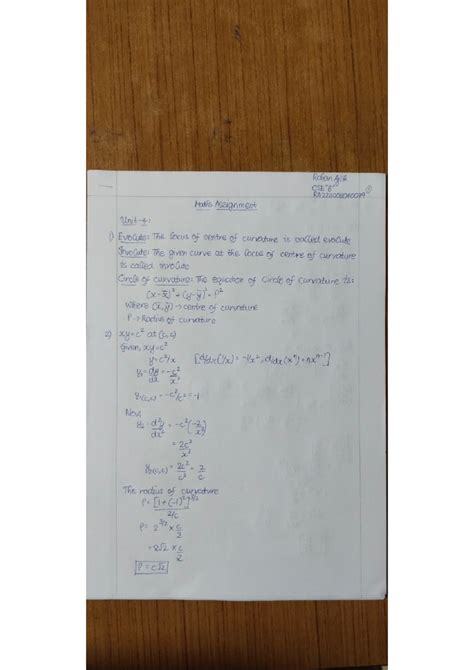 Rohan
CSE "B"
Maths Assignment
Unit-4:
1) Evolute: The locus of centre of curvature is called evolute
Involute: The given curve at the locus of centre of curvature
is called involute
Circle of curvature: The equation of circle of curvature is:
(x-x̄)²+(y-ȳ)²=ρ²
Where (x̄,ȳ) → centre of curvature
ρ → Radius of curvature
2) xy=c² at (c,c)
Given, xy=c²
y=c²/x [d/dx(1/x) = -1/x² ; d/dx(xⁿ)=nxⁿ⁻¹]
y₁=dy/dx = -c²/x²
y₁(c,c) = -c²/c² = -1
Now,
y₂=d²y/dx² = -c²(-2/x³)
= 2c²/x³
y₂(c,c) = 2c²/c³ = 2/c
The radius of curvature
ρ=[1+(-1)²]^3/2 / 2/c
ρ= 2^3/2 × c/2
= 2√2 × c/2
ρ=c√2